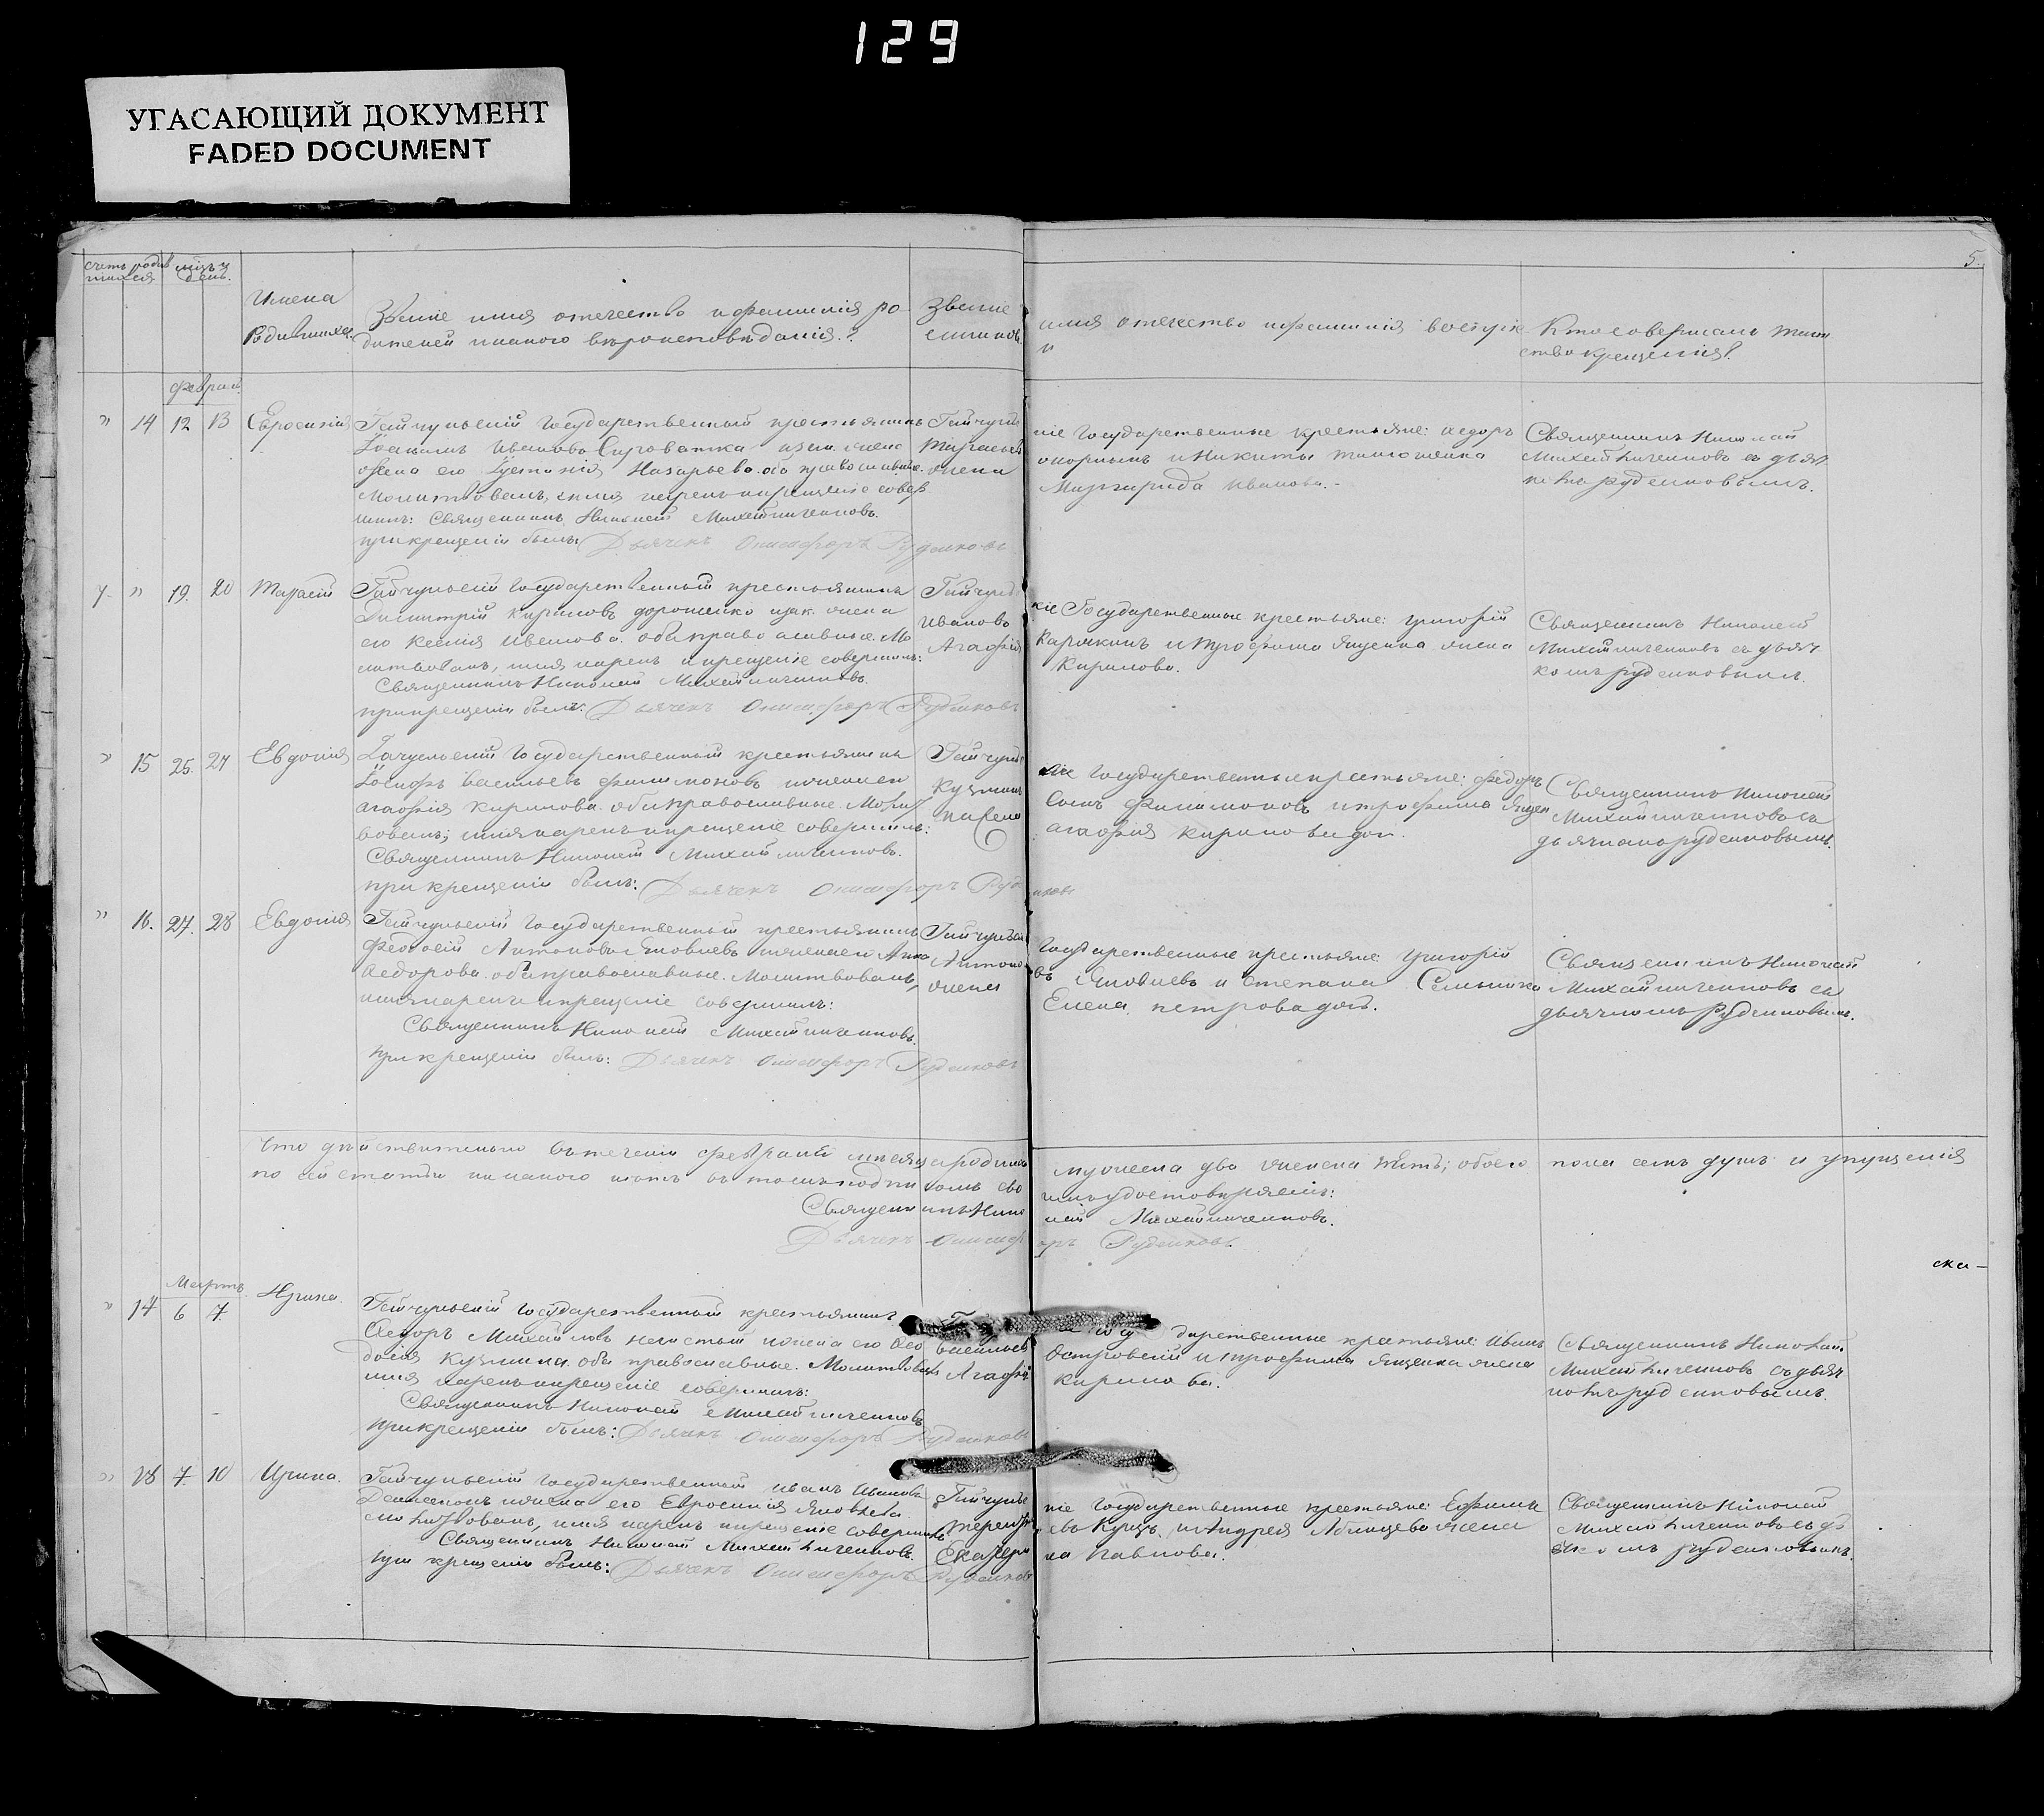 129
УГАСАЮЩИЙ ДОКУМЕНТ
FADED DOCUMENT
5.
счетъ родив
шихся
день.
Имена
Родившихся
Званіе имя отечество и фамилія ро
дителей и какого вѣроисповѣданія?
Званіе
имя отечество и фамилія воспріе
Кто совершалъ таин
ство крещенія?
Феврал
" 14 12 13 Евросинія
Гайчульскій Государственный крестьянинъ
Иванова жена
его Назарьева оба православные
Молитвовалъ, имя нарекъ и крещеніе совер
шилъ: Священникъ Николай Михайличенковъ.
при крещеніи былъ: Дьячекъ Онисифоръ Руденковъ
Гайчуль
жена
кіе Государственные крестьяне: Ѳедоръ
и Никиты Тимошенка
Маргарида Иванова.
Священникъ Николай
Михайличенковъ съ дьяч
комъ Руденковымъ.
7 " 19. 20 Тарасій
Гайчульскій Государственный крестьянинъ
Димитрій Кириловъ Дорошенко и жена
его Ксенія Иванова. оба православные. Мо
литвовалъ, имя нарекъ и крещеніе совершилъ:
Священникъ Николай Михайличенковъ.
при крещеніи былъ: Дьячекъ Онисифоръ Руденковъ
Гайчуль
Иваново
Агафія
кіе Государственные крестьяне: Григорій
и Трофима Яценка жена
Кирилова.
Священникъ Николай
Михайличенковъ съ дьяч
комъ Руденковымъ.
" 15 25. 27 Евдокія
Гайчульскій Государственный крестьянинъ
Іосифъ Васильевъ Филимоновъ и жена его
Агафія Кирилова. оба православные. Молит
вовалъ, имя нарекъ и крещеніе совершилъ:
Священникъ Николай Михайличенковъ.
при крещеніи былъ: Дьячекъ Онисифоръ Руденковъ
Гайчуль
Кузминъ
кіе Государственные крестьяне: Федоръ
сынъ Филимоновъ и Трофима Яцен
Агафія Кирилова дог.
Священникъ Николай
Михайличенковъ съ
дьячкомъ Руденковымъ.
" 16. 27. 28 Евдокія
Гайчульскій Государственный крестьянинъ
Феодосій Антоновъ Яковлевъ и жена его Анна
Ѳедорова. оба православные. Молитвовалъ,
имя нарекъ и крещеніе совершилъ:
Священникъ Николай Михайличенковъ.
при крещеніи былъ: Дьячекъ Онисифоръ Руденковъ
Гайчульскі
Антоно
жена
Государственные крестьяне: Григорій
въ Яковлевъ и Степана
Елена Петрова дог.
Священникъ Николай
Михайличенковъ съ
дьячкомъ Руденковымъ.
Что дѣйствительно въ теченіи февраля мѣсяца родилось мужеска два женска пять; обоего пола семь душъ и упущенія
по сей статьи никакого нѣтъ въ томъ подписомъ своимъ удостовѣряемъ:
Священникъ Николай Михайличенковъ.
Дьячекъ Онисифоръ Руденковъ.
ска-
Мартъ
" 17 6 7 Ирина.
Гайчульскій Государственный крестьянинъ
Ѳедоръ Михайловъ и жена его Евд
докія Кузмина. оба православные. Молитвовалъ
имя нарекъ и крещеніе совершилъ:
Священникъ Николай Михайличенковъ
при крещеніи былъ: Дьячекъ Онисифоръ Руденковъ
Васильевъ
Агафія
Государственные крестьяне: Иванъ
Островскій и Трофима Яценка жена
Кирилова.
Священникъ Николай
Михайличенковъ съ дьяч
комъ Руденковымъ.
" 18 7. 10 Ирина.
Гайчульскій Государственный Иванъ Ивановъ
и жена его Евросинія Яковлева.
молитвовалъ, имя нарекъ и крещеніе совершилъ
Священникъ Николай Михайличенковъ.
при крещеніи былъ: Дьячекъ Онисифоръ Руденковъ
Гайчуль
Терентьевъ
Екатерина
кіе Государственные крестьяне: Ефимъ
Куцъ. и Андрея жена
Павлова.
Священникъ Николай
Михайличенковъ съ дья
чкомъ Руденковымъ.